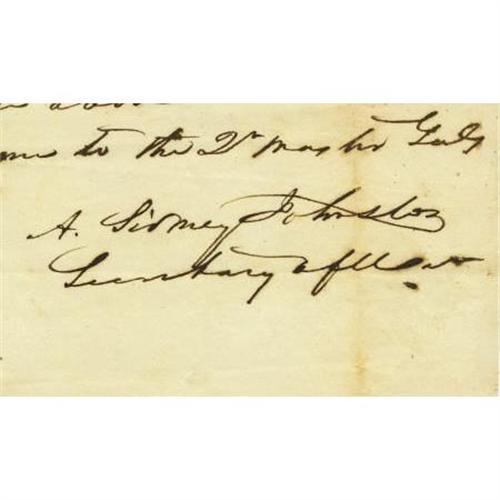 me to the Qr Master Genl
A. Sidney Johnston
Secretary of War